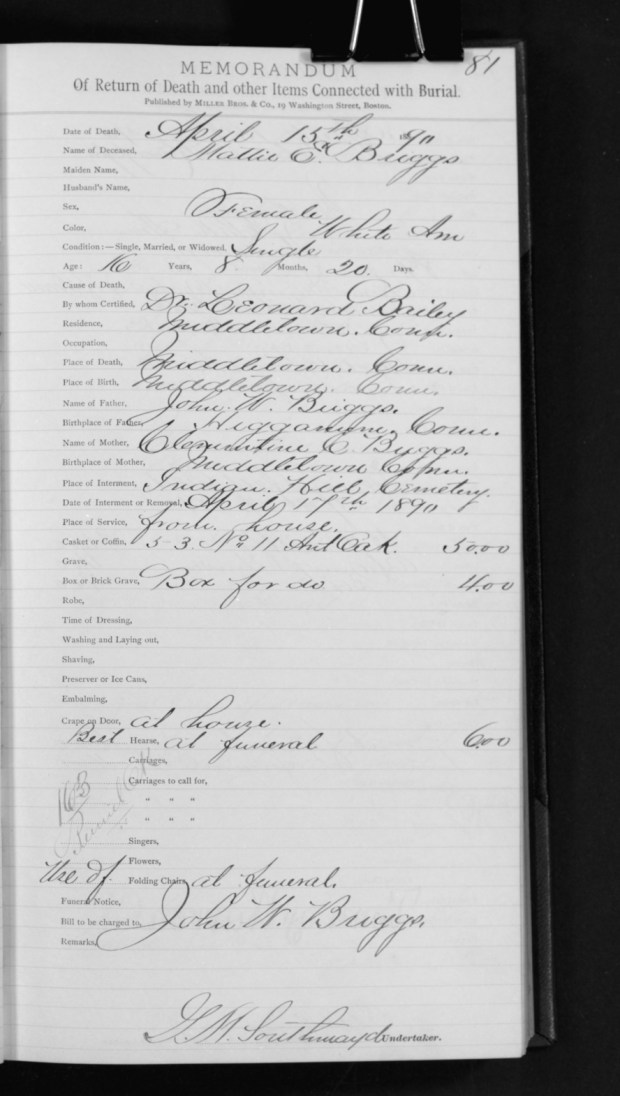 81
MEMORANDUM
Of Return of Death and other Items Connected with Burial.
Published by MILLER BROS. & CO., 19 Washington Street, Boston.
Date of Death, April 15th 1890
Name of Deceased, Mattie E. Briggs
Maiden Name,
Husband's Name,
Sex, Female
Color, White Am
Condition:—Single, Married, or Widowed. Single
Age: 16 Years, 8 Months, 20 Days.
Cause of Death,
By whom Certified, Dr. Leonard Bailey
Residence, Middletown. Conn.
Occupation,
Place of Death, Middletown. Conn.
Place of Birth, Middletown. Conn.
Name of Father, John. W. Briggs.
Birthplace of Father, Higganum. Conn.
Name of Mother, Clementine C. Briggs.
Birthplace of Mother, Middletown Conn.
Place of Interment, Indian. Hill Cemetery.
Date of Interment or Removal, April 17th 1890
Place of Service, from. house.
Casket or Coffin, 5-3. No 11 Ant Oak. 50.00
Grave,
Box or Brick Grave, Box for do 4.00
Robe,
Time of Dressing,
Washing and Laying out,
Shaving,
Preserver or Ice Cans,
Embalming,
Crape on Door, at house.
Best Hearse, at funeral 6.00
Carriages,
Carriages to call for,
" " "
" " "
163
Singers,
Flowers,
Use of Folding Chairs, at funeral.
Funeral Notice,
Bill to be charged to, John W. Briggs.
Remarks,
Southmayd Undertaker.